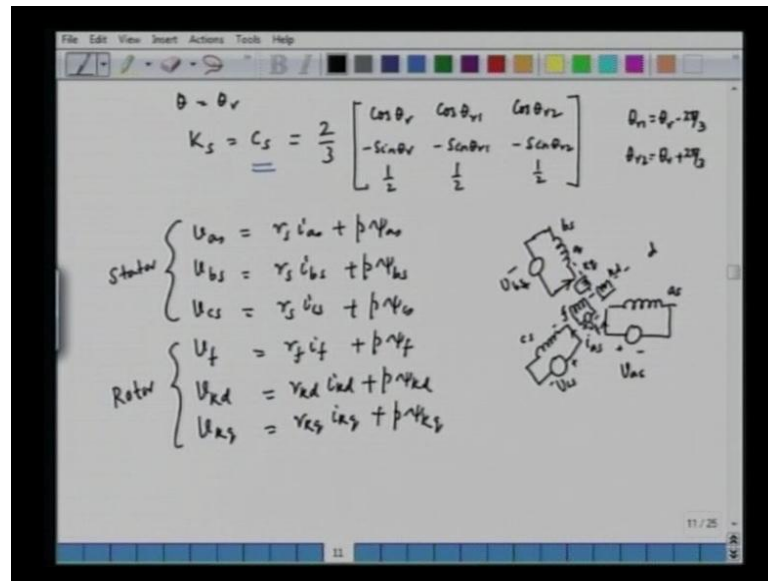 File Edit View Insert Actions Tools Help
B I
θ = θr
Ks = Cs = 2/3 [ Cosθr Cosθr1 Cosθr2
-Sinθr -Sinθr1 -Sinθr2
1/2 1/2 1/2 ]
θr1 = θr - 2π/3
θr2 = θr + 2π/3
Stator
vas = rs ias + pψas
vbs = rs ibs + pψbs
vcs = rs ics + pψcs
Rotor
vf = rf if + pψf
vkd = rkd ikd + pψkd
vkq = rkq ikq + pψkq
bs
d
as
cs
ias
vbs
vcs
vas
11 / 25
11